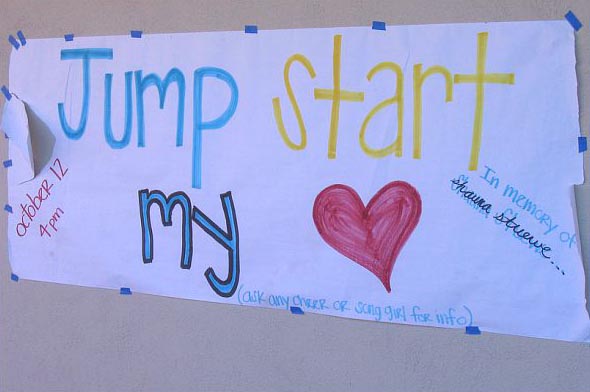 Jump start
my
october 12
4 pm
In memory of
shauna stuewe...
(ask any cheer or song girl for info)